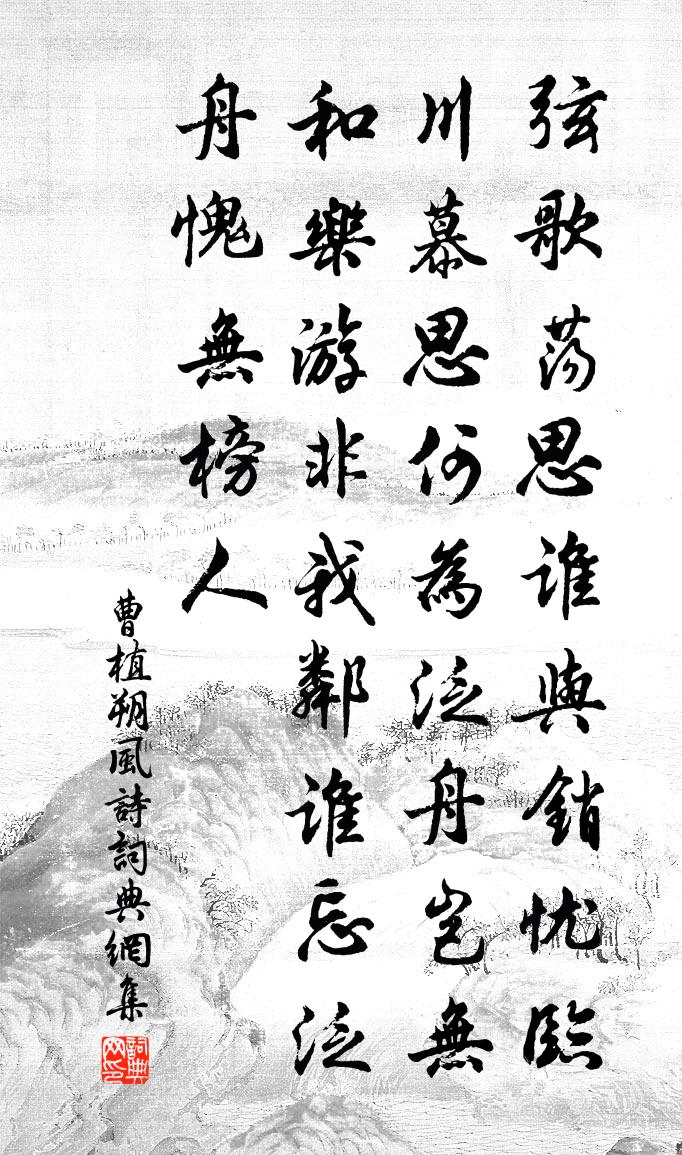 弦歌荡思谁與銷忧臨
川慕思何為泛舟岂無
和樂游非我鄰谁忘泛
舟愧無榜人
曹植朔風詩詞典網集
詞典网印